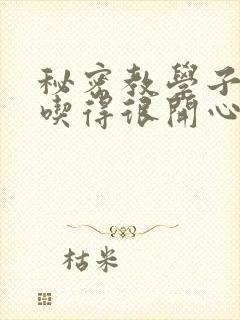 秘密教學子
喫得很開心
枯米